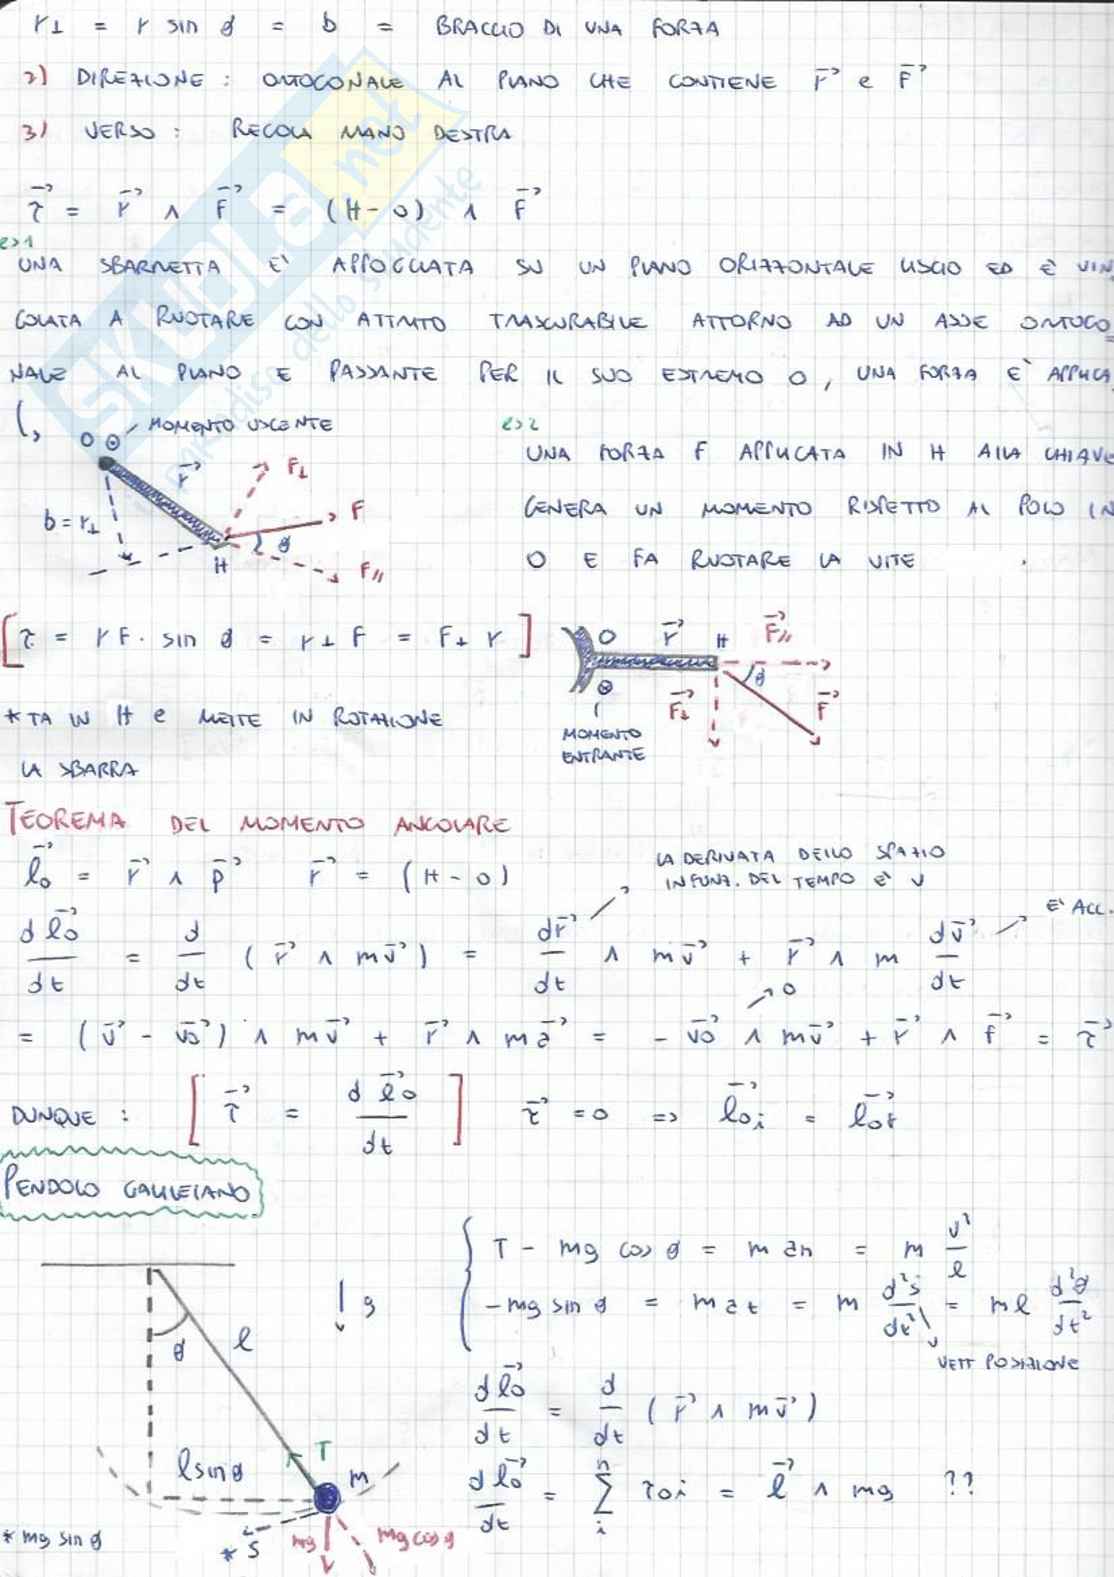 r⊥ = r sin θ = b = BRACCIO DI UNA FORZA
2) DIREZIONE : ORTOGONALE AL PIANO CHE CONTIENE r⃗ e F⃗
3) VERSO : REGOLA MANO DESTRA
τ⃗ = r⃗ ∧ F⃗ = (H - O) ∧ F⃗
es1
UNA SBARRETTA E' APPOGGIATA SU UN PIANO ORIZZONTALE LISCIO ED È VIN
COLATA A RUOTARE CON ATTRITO TRASCURABILE ATTORNO AD UN ASSE ORTOGO=
NALE AL PIANO E PASSANTE PER IL SUO ESTREMO O, UNA FORZA E' APPLICA
MOMENTO USCENTE
O
r⃗
F⊥
F
b = r⊥
θ
H
F//
es2
UNA FORZA F APPLICATA IN H ALLA CHIAVE
GENERA UN MOMENTO RISPETTO AL POLO IN
O E FA RUOTARE LA VITE .
[τ = r F · sin θ = r⊥ F = F⊥ r]
O r⃗ H F⃗//
θ
F⃗⊥ F⃗
MOMENTO
ENTRANTE
*TA IN H e METTE IN ROTAZIONE
LA SBARRA
TEOREMA DEL MOMENTO ANGOLARE
l⃗o = r⃗ ∧ p⃗ r⃗ = (H - O)
LA DERIVATA DELLO SPAZIO
IN FUNZ. DEL TEMPO E' V
E' ACC.
dl⃗o/dt = d/dt (r⃗ ∧ mv⃗) = dr⃗/dt ∧ mv⃗ + r⃗ ∧ m dv⃗/dt
0
= (v⃗ - v⃗o) ∧ mv⃗ + r⃗ ∧ ma⃗ = - v⃗o ∧ mv⃗ + r⃗ ∧ f⃗ = τ⃗
DUNQUE : [τ⃗ = d l⃗o/dt] τ⃗ = 0 => l⃗oi = l⃗of
PENDOLO GALILEIANO
T - mg cos θ = m an = m v²/l
-mg sin θ = m at = m d²s/dt² = ml d²θ/dt²
VETT POSIZIONE
g
θ
l
T
l sin θ
M
* S
mg
mg cos θ
* mg sin θ
dl⃗o/dt = d/dt (r⃗ ∧ mv⃗)
dl⃗o/dt = Σ n i τoi = l⃗ ∧ mg ??
SKUOLA.net
paradiso dello studente